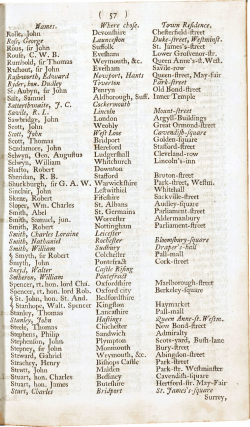 ( 57 )
Names. Where chose. Town Residence.
Rolle, John Devonshire Chesterfield-street
Rose, George Launceston Duke-street, Westminst.
Rous, sir John Suffolk St. James's-street
Rouse, C. W. B. Evesham Lower Grosvenor-str.
Rumbold, sir Thomas Weymouth, &c. Queen Anne-street
Rushout, sir John Evesham Saville-row
Rushworth, Edward Newport, Hants Queen-street, May-fair
Ryder, hon. Dudley Tiverton Park-street
St. Aubyn, sir John Penryn Old Bond-street
Salt, Samuel Aldborough, Suff. Inner Temple
Satterthwaite, J. C. Cockermouth
Savile, R. L. Lincoln Mount-street
Sawbridge, John London Argyll-Buildings
Scott, John Weobly Great Ormond-street
Scott, John West Love Cavendish-square
Scott, Thomas Bridport Golden-square
Scudamore, John Hereford Stafford-street
Selwyn, Geo. Augustus Ludgershall Cleveland-row
Selwyn, William Whitchurch Lincoln's-inn
Shafto, Robert Downton
Sheridan, R. B. Stafford Bruton-street
Shuckburgh, sir G. A. W. Warwickshire Park-street, Westm.
Sinclair, John Lestwithiel Whitehall
Skene, Robert Fifeshire Sackville-street
Sloper, Wm. Charles St. Albans Audley-square
Smith, Abel St. Germains Parliament-street
Smith, Samuel, jun. Worcester Aldermanbury
Smith, Robert Nottingham Parliament-street
Smith, Charles Loraine Leicester
Smith, Nathaniel Rochester Bloomsbury-square
Smith, William Sudbury Draper's-hall
Smyth, sir Robert Colchester Pall-mall
Smyth, John Pontefract Cork-street
Sneyd, Walter Castle Rising
Sotheron, William Pontefract
Spencer, rt. hon. lord Cha. Oxfordshire Marlborough-street
Spencer, rt. hon. lord Rob. Oxford city Berkeley-square
St. John, hon. St. And. Bedfordshire
Stanhope, Walt. Spencer Kingston Haymarket
Stanley, Thomas Lancashire Pall-mall
Stanley, John Hastings Queen Anne-st. Westm.
Steele, Thomas Chichester New Bond-street
Stephens, Philip Sandwich Admiralty
Stephenson, John Plympton Scots-yard, Bush-lane
Stepney, sir John Monmouth Bury-street
Steward, Gabriel Weymouth, &c. Abingdon-street
Strachey, Henry Bishops Castle Park-street
Strutt, John Malden Park-str. Westminster
Stuart, hon. Charles Bossiney Cavendish-square
Stuart, hon. James Buteshire Hertford-str. May-Fair
Sturt, Charles Bridport St. James's-square
Surrey,